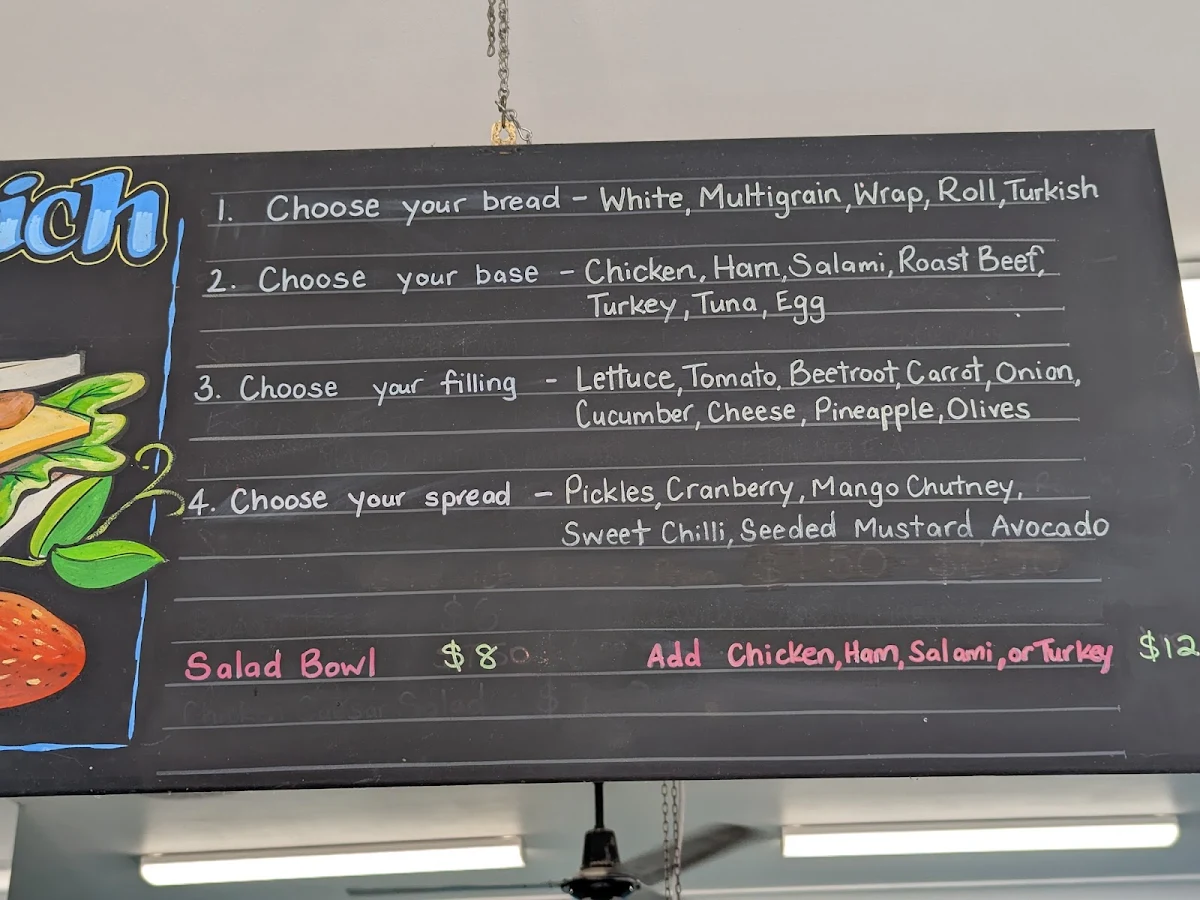 ich
1. Choose your bread - White, Multigrain, Wrap, Roll, Turkish
2. Choose your base - Chicken, Ham, Salami, Roast Beef,
Turkey, Tuna, Egg
3. Choose your filling - Lettuce, Tomato, Beetroot, Carrot, Onion,
Cucumber, Cheese, Pineapple, Olives
4. Choose your spread - Pickles, Cranberry, Mango Chutney,
Sweet Chilli, Seeded Mustard Avocado
Salad Bowl $8 Add Chicken, Ham, Salami, or Turkey $12